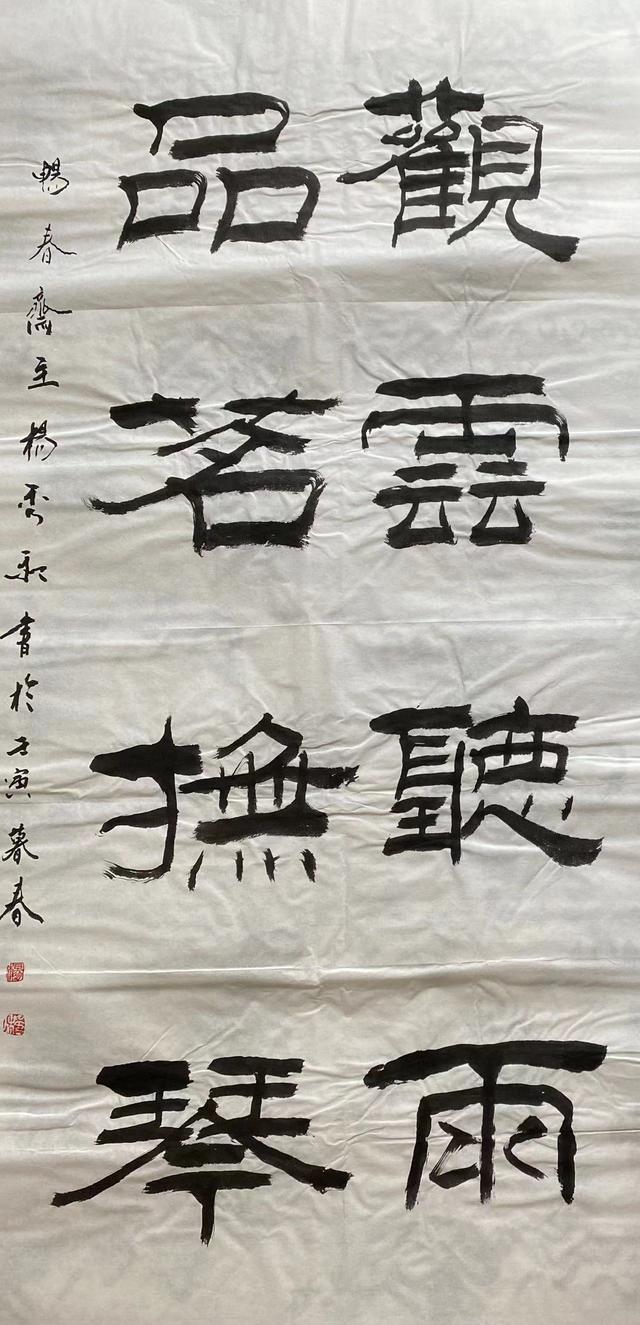 觀雲聽雨
品茗撫琴
暢春齋主楊秀和書於壬寅暮春